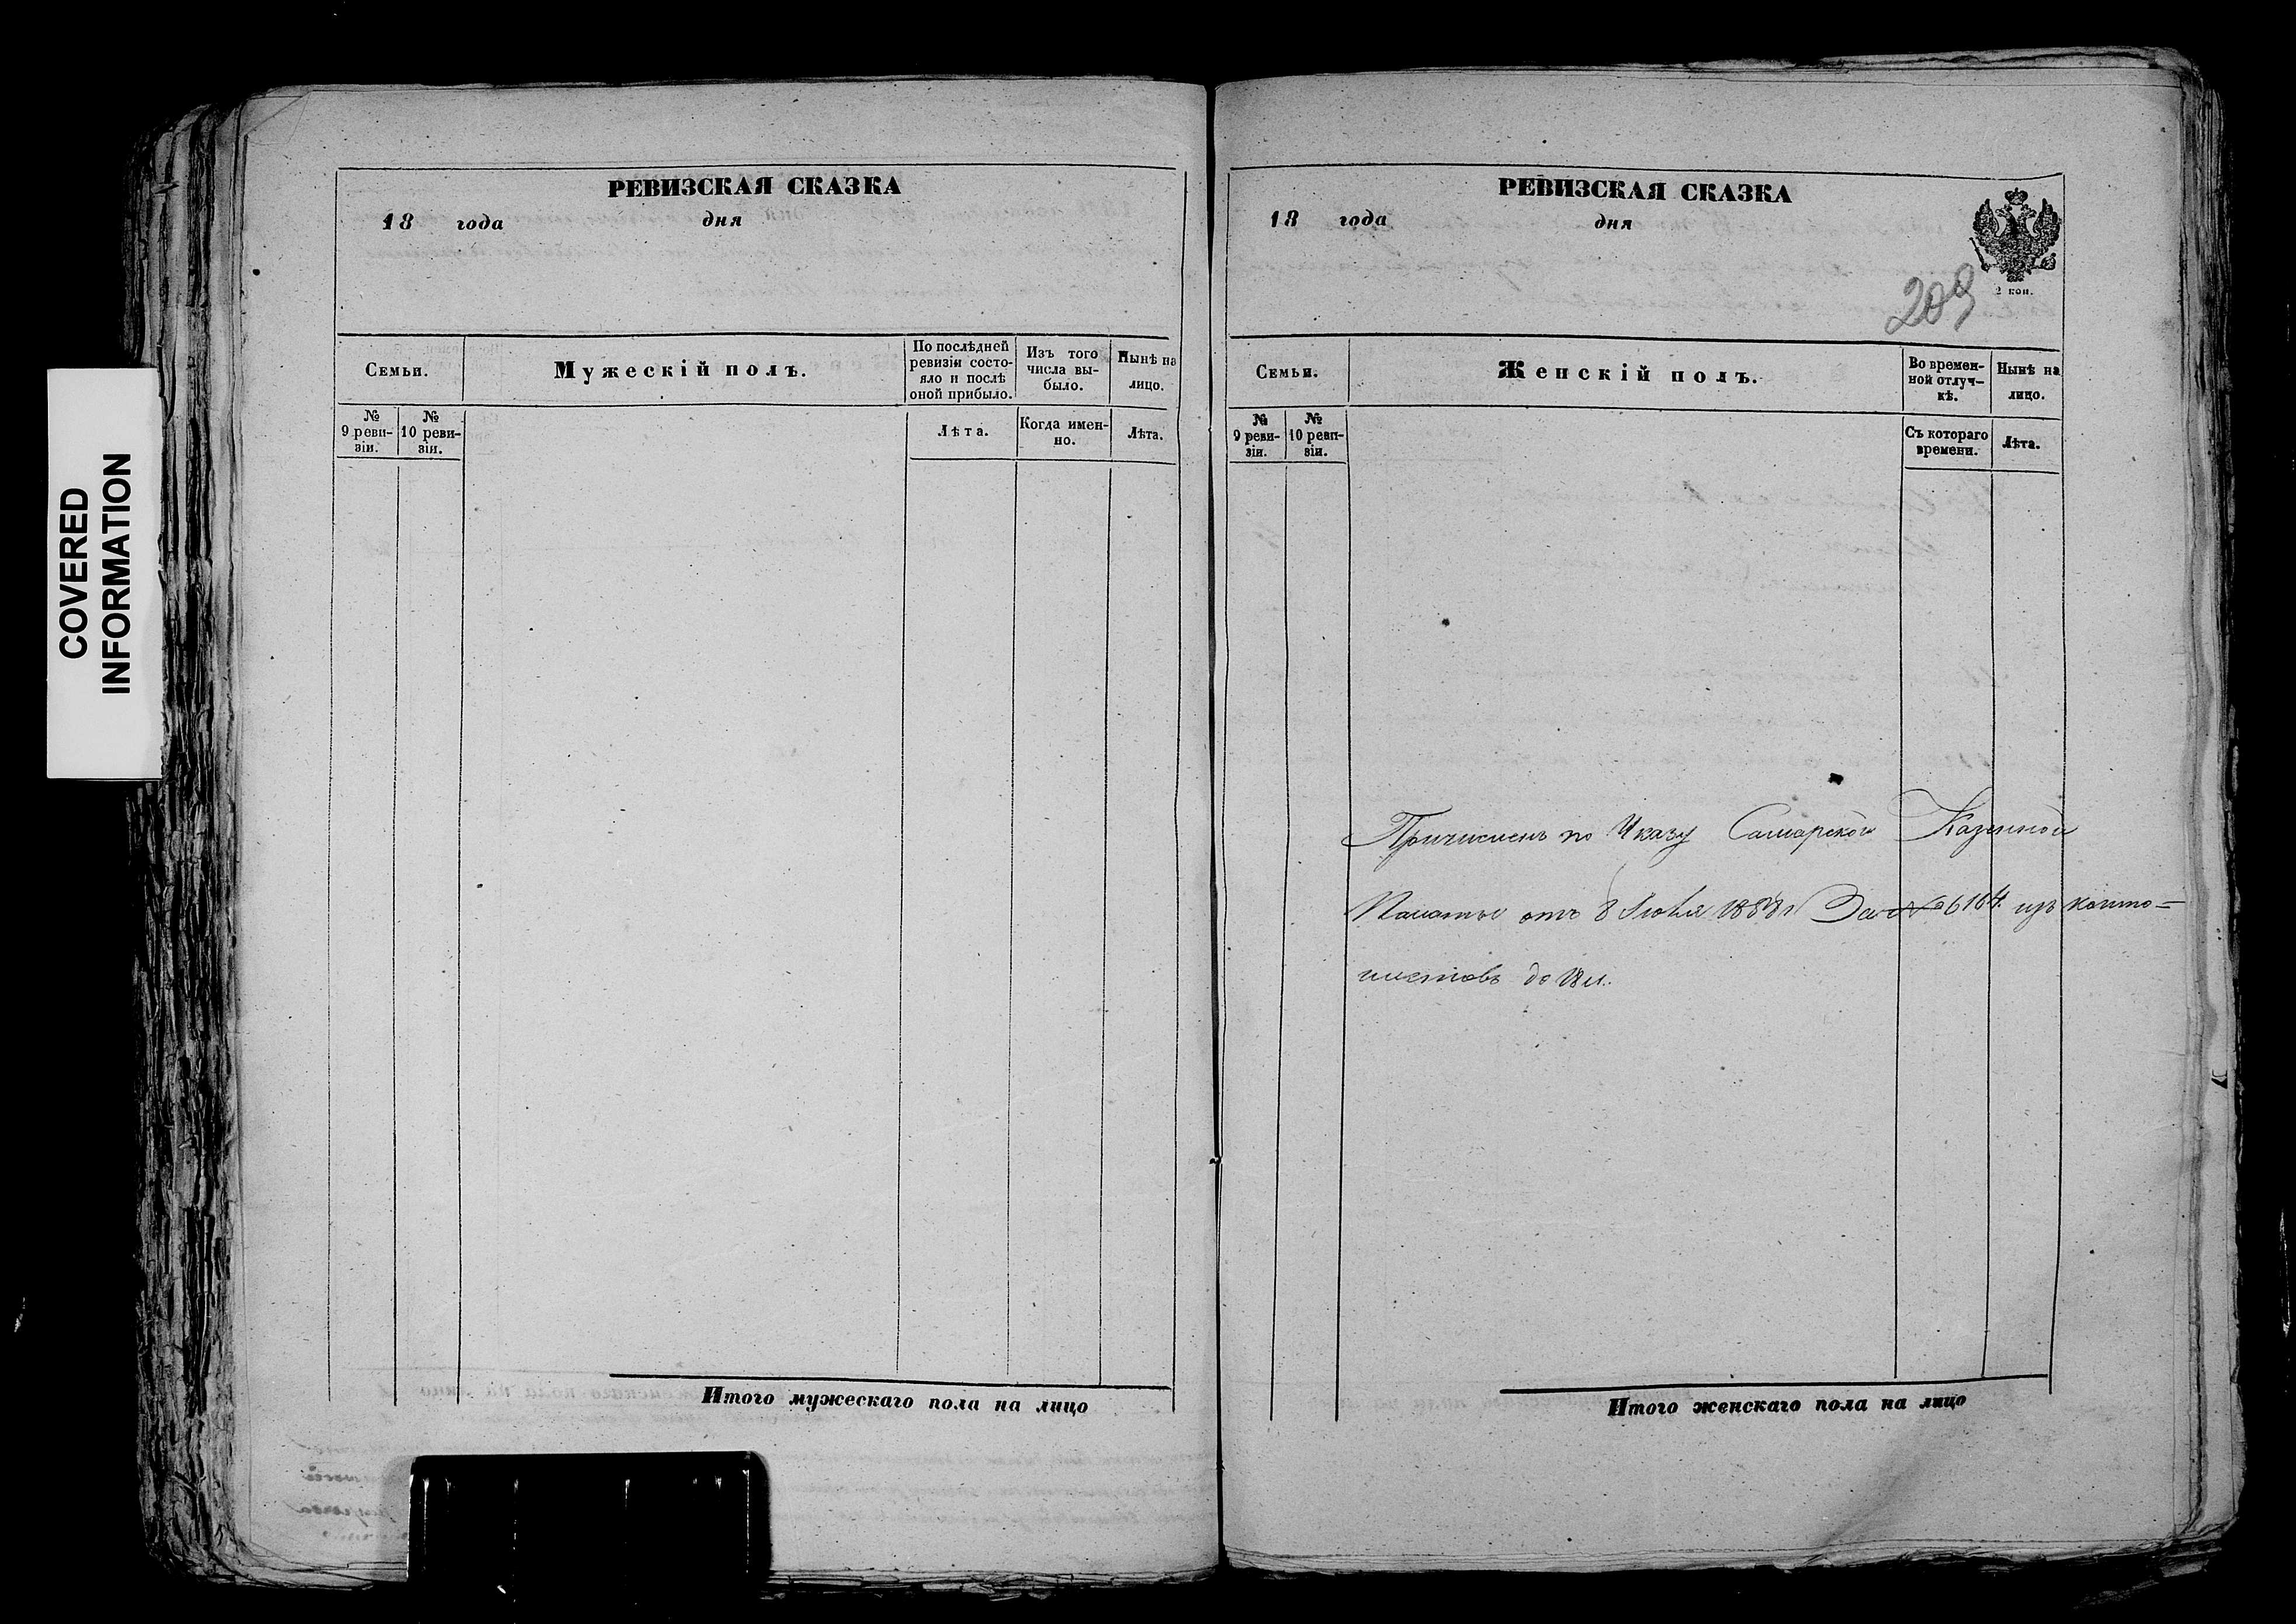 COVERED
INFORMATION
РЕВИЗСКАЯ СКАЗКА
18 года дня
Семьи.
Мужескій полъ.
По послѣдней
ревизіи состо-
яло и послѣ
оной прибыло.
Изъ того
числа вы-
было.
Нынѣ на
лицо.
№
9 реви-
зіи.
№
10 реви-
зіи.
Лѣта.
Когда имен-
но.
Лѣта.
Итого мужескаго пола на лицо
РЕВИЗСКАЯ СКАЗКА
18 года дня
2 коп.
209
Семьи.
Женскій полъ.
Во времен-
ной отлуч-
кѣ.
Нынѣ на
лицо.
№
9 реви-
зіи.
№
10 реви-
зіи.
Съ котораго
времени.
Лѣта.
Причисленъ по Указу Самарской Казенной
Палаты отъ 8 1858 г За № 6164. изъ
до
Итого женскаго пола на лицо